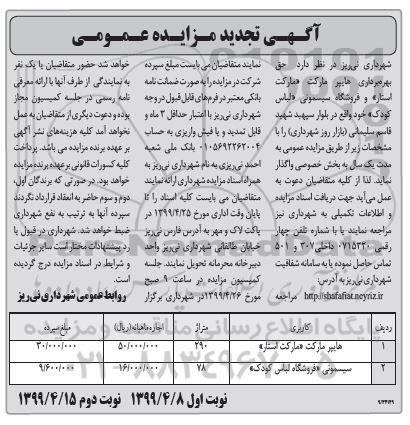 آگهی تجدید مزایده عمومی
شهرداری نی‌ریز در نظر دارد حق
بهره‌برداری هایپر مارکت «مارکت
استار» و فروشگاه سیسمونی «لباس
کودک» خود واقع در بلوار سپهبد شهید
قاسم سلیمانی (بازار روز شهرداری) را با
مشخصات زیر از طریق مزایده عمومی به
مدت یک سال به بخش خصوصی واگذار
نماید. لذا از کلیه متقاضیان دعوت به
عمل می‌آید جهت دریافت اسناد مزایده
و اطلاعات تکمیلی به شهرداری نیز
مراجعه نمایند یا با شماره تلفن چهار
رقمی ۰۷۱۵۳۳۰ داخلی ۳۰۷ و ۵۰۱
تماس حاصل نموده یا به سامانه شفافیت
شهرداری نی‌ریز به آدرس:
http://shafafiat.neyriz.ir مراجعه
نمایند متقاضیان می بایست مبلغ سپرده
شرکت در مزایده را به صورت ضمانت نامه
بانکی معتبر در فرم‌های قابل قبول در وجه
شهرداری نی‌ریز با اعتبار حداقل ۳ ماه و
قابل تمدید و یا فیش واریزی به حساب
۰۱۰۵۶۹۲۲۶۲۰۰۴ بانک ملی شعبه
احمد نی‌ریزی به نام شهرداری نی‌ریز به
همراه اسناد مزایده شهرداری ارائه نمایند
متقاضیان می بایست کلیه اسناد را تا
پایان وقت اداری مورخ ۱۳۹۹/۴/۲۵ در
پاکت لاک و مهر به آدرس فارس نی‌ریز
خیابان طالقانی شهرداری نی‌ریز واحد
دبیرخانه محرمانه تحویل نمایند. جلسه
کمیسیون مزایده در ساعت ۹ صبح
مورخ ۱۳۹۹/۴/۲۶ در شهرداری برگزار
خواهد شد حضور متقاضیان یا یک نفر
به نمایندگی از طرف آنها با ارائه معرفی
نامه رسمی در جلسه کمیسیون مجاز
بوده و دعوت دیگری از متقاضیان به عمل
نخواهد آمد کلیه هزینه‌های نشر آگهی
بر عهده برنده مزایده می باشد. پرداخت
کلیه کسورات قانونی بر عهده برنده مزایده
خواهد بود. در صورتی که برندگان اول،
دوم و سوم حاضر به انعقاد قرارداد نگردند
سپرده آنها به ترتیب به نفع شهرداری
ضبط خواهد شد. شهرداری در قبول یا
رد پیشنهادات مختار است سایر جزئیات
و شرایط در اسناد مزایده درج گردیده
است.
روابط عمومی شهرداری نی‌ریز
ردیف کاربری متراژ اجاره ماهانه (ریال) مبلغ سپرده
۱ هایپر مارکت «مارکت استار» ۲۹۰ ۵۰/۰۰۰/۰۰۰ ۳۰/۰۰۰/۰۰۰
۲ سیسمونی «فروشگاه لباس کودک» ۷۸ ۱۶/۰۰۰/۰۰۰ ۹/۶۰۰/۰۰۰
نوبت اول ۱۳۹۹/۴/۸ نوبت دوم ۱۳۹۹/۴/۱۵